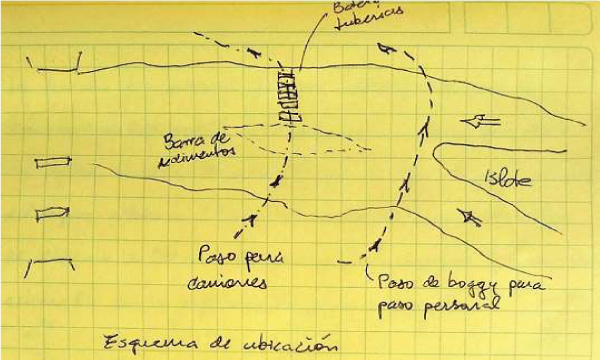 tuberías
Barra de
sedimentos
Islote
Paso para
camiones
Paso de boggy para
paso personal
Esquema de ubicación